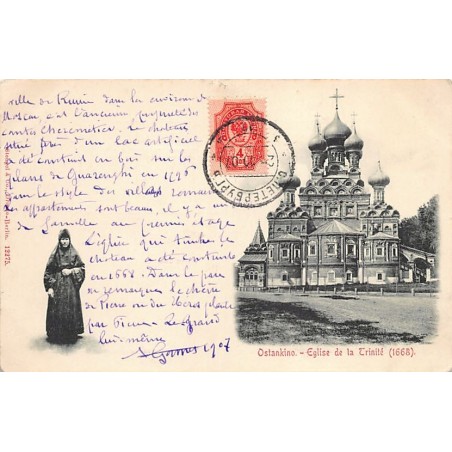 ville de Russie dans les environs de
Moscou, est l'ancienne propriété du
comte Cheremetief. Le château
situé près d'un lac artificiel
a été construit en bois sur les
plans de Quarenghi en
dans le style des villas romaines
les appartements sont beaux, il y a un
de famille au premier étage
L'église qui touche le
château a été construite
en 1668. Dans le parc
on remarque le chêne
de Pierre
par Pierre le Grand
lui-même
1907
С.ПЕТЕРБУРГЪ
4
Ostankino. – Eglise de la Trinité (1668).
Berlin. 12275.